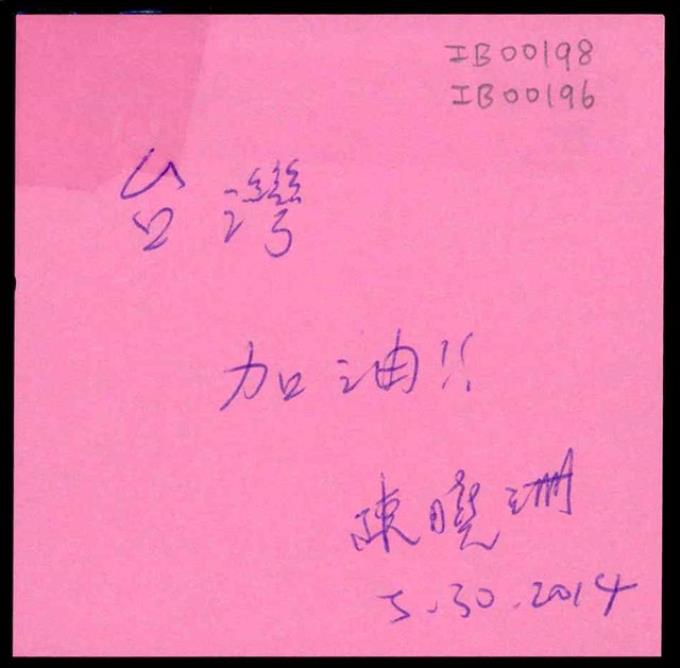 IB00198
IB00196
台灣
加油!!
陳曉珊
5.30.2014